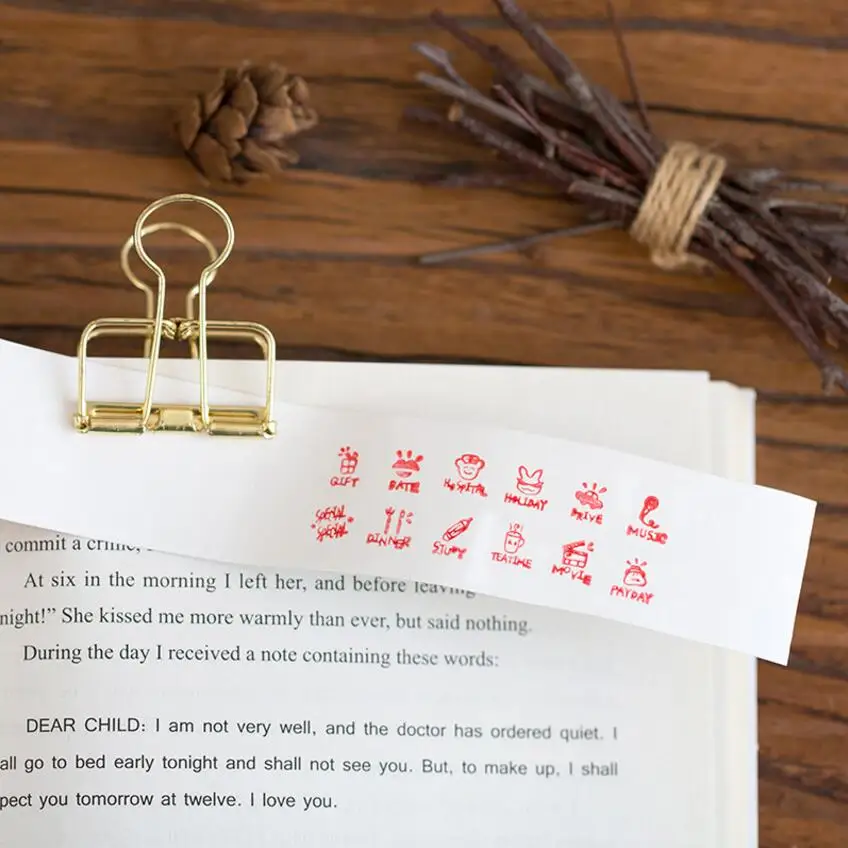 GIFT DATE HOSPITAL HOLIDAY DRIVE MUSIC
SPECIAL SPECIAL DINNER STUDY TEATIME MOVIE PAYDAY
commit a crime,
At six in the morning I left her, and before leaving
night!” She kissed me more warmly than ever, but said nothing.
During the day I received a note containing these words:
DEAR CHILD: I am not very well, and the doctor has ordered quiet. I
all go to bed early tonight and shall not see you. But, to make up, I shall
pect you tomorrow at twelve. I love you.